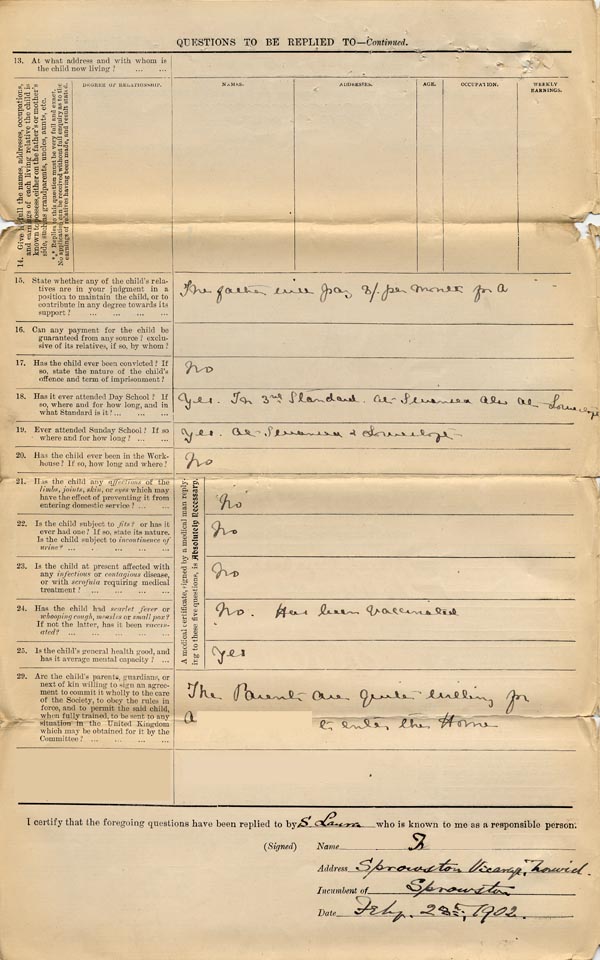 QUESTIONS TO BE REPLIED TO—Continued.
13. At what address and with whom is
the child now living? ... ...
14. Give in full the names, addresses, occupations,
and earnings of each living relative the child is
known to possess, either on the father's or mother's
side, such as grandparents, uncles, aunts, etc.
*** Replies to this question must be very full and exact.
No application can be received without full enquiry as to the
earnings of relatives having been made, and result stated.
DEGREE OF RELATIONSHIP.
NAMES.
ADDRESSES.
AGE.
OCCUPATION.
WEEKLY
EARNINGS.
15. State whether any of the child's rela-
tives are in your judgment in a
position to maintain the child, or to
contribute in any degree towards its
support? ... ... ...
The father will pay 3/. per month for A
16. Can any payment for the child be
guaranteed from any source? exclu-
sive of its relatives, if so, by whom?
17. Has the child ever been convicted? If
so, state the nature of the child's
offence and term of imprisonment?
No
18. Has it ever attended Day School? If
so, where and for how long, and in
what Standard is it? ... ...
Yes. In 3rd Standard. At Swansea also at
19. Ever attended Sunday School? If so
where and for how long? ... ...
Yes. At Swansea &
20. Has the child ever been in the Work-
house? If so, how long and where?
No
A medical certificate, signed by a medical man reply-
ing to these five questions, is Absolutely Necessary.
21. Has the child any affections of the
limbs, joints, skin, or eyes which may
have the effect of preventing it from
entering domestic service? ...
No
22. Is the child subject to fits? or has it
ever had one? If so, state its nature.
Is the child subject to incontinence of
urine? ... ... ...
No
23. Is the child at present affected with
any infectious or contagious disease,
or with scrofula requiring medical
treatment? ... ... ...
No
24. Has the child had scarlet fever or
whooping cough, measles or small pox?
If not the latter, has it been vaccin-
ated? ... ... ...
No. Has been Vaccinated
25. Is the child's general health good, and
has it average mental capacity? ...
Yes
29. Are the child's parents, guardians, or
next of kin willing to sign an agree-
ment to commit it wholly to the care
of the Society, to obey the rules in
force, and to permit the said child,
when fully trained, to be sent to any
situation in the United Kingdom
which may be obtained for it by the
Committee? ... ... ...
The Parents are quite willing for
A to enter the Home
I certify that the foregoing questions have been replied to by S Laura who is known to me as a responsible person.
(Signed) Name
Address Sprowston Vicarage, Norwich.
Incumbent of Sprowston
Date Feby. 1902.